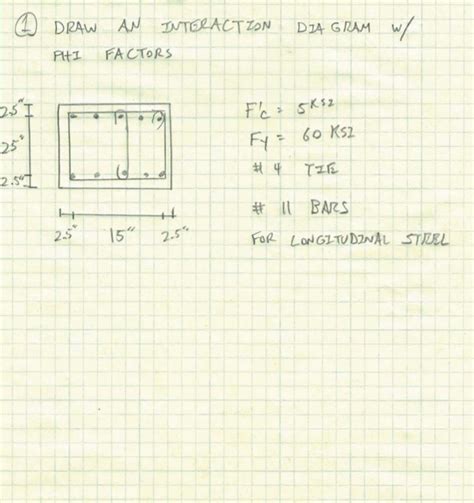 ① DRAW AN INTERACTION DIAGRAM W/
PHI FACTORS
2.5"
25"
2.5"
F'c = 5 KSI
Fy = 60 KSI
# 4 TIE
# 11 BARS
FOR LONGITUDINAL STEEL
2.5" 15" 2.5"